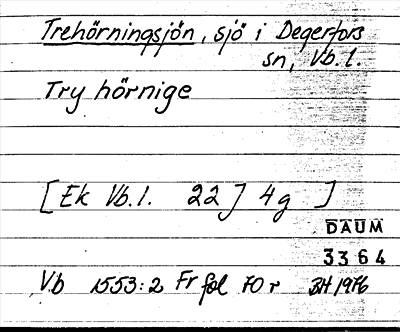 Trehörningsjön, sjö i Degerfors
sn, Vb. l.
Try hörnige
[Ek Vb. l. 22 J 4g ]
DAUM
3364
Vb 1553:2 Fr fol 70 r BH 1976